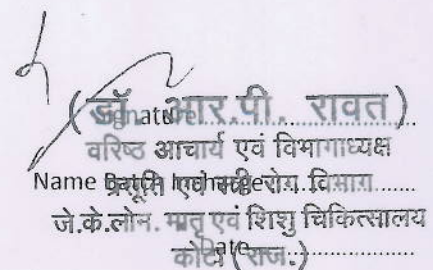 Signature..............................
(डॉ. आर.पी. रावत)
वरिष्ठ आचार्य एवं विभागाध्यक्ष
Name
प्रसूति एवं स्त्री रोग विभाग
जे.के.लोन. मातृ एवं शिशु चिकित्सालय
Date....................
कोटा (राज.)